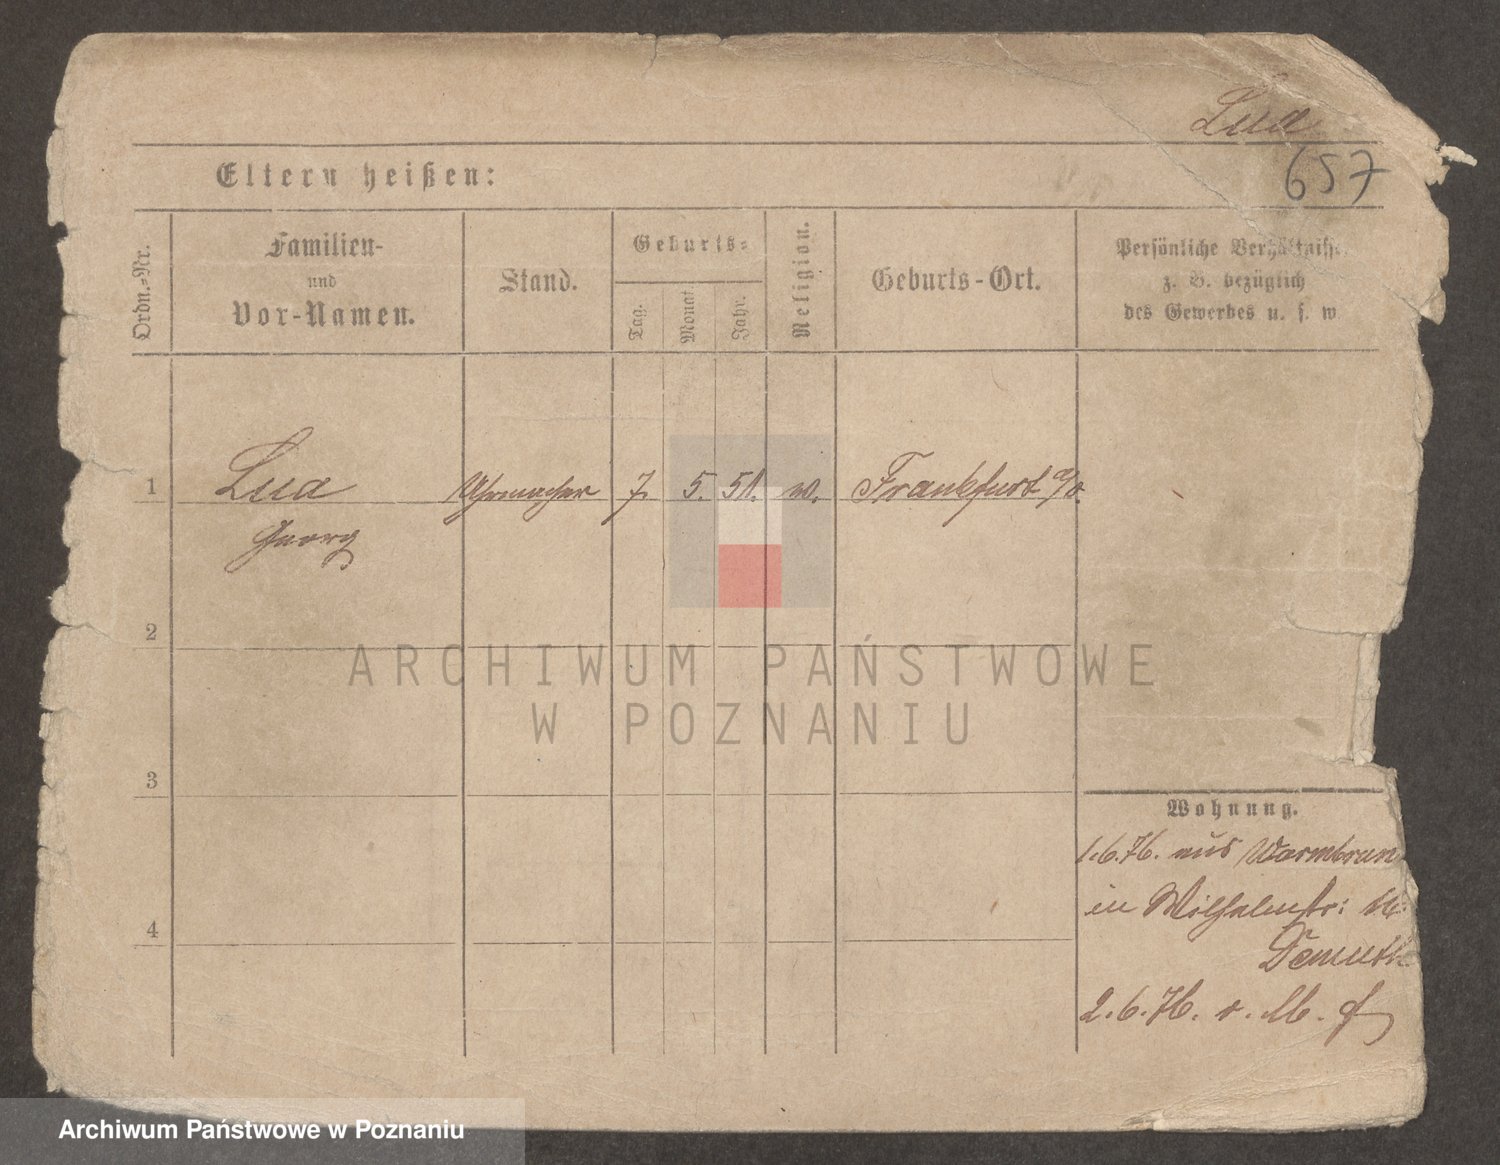 Lua
657
Eltern heißen:
Ordn.-Nr.
Familien-
und
Vor-Namen.
Stand.
Geburts-
Tag.
Monat.
Jahr.
Religion.
Geburts-Ort.
Persönliche Verhältnisse
z. B. bezüglich
des Gewerbes u. s. w.
1
Lua
Georg
Uhrmacher
7.
5.
51.
Frankfurt a/o.
2
3
4
Wohnung.
1.6.76. aus Warmbrun
in Wilhelmstr:
Demuth
2.6.76.
ARCHIWUM PAŃSTWOWE
W POZNANIU
Archiwum Państwowe w Poznaniu